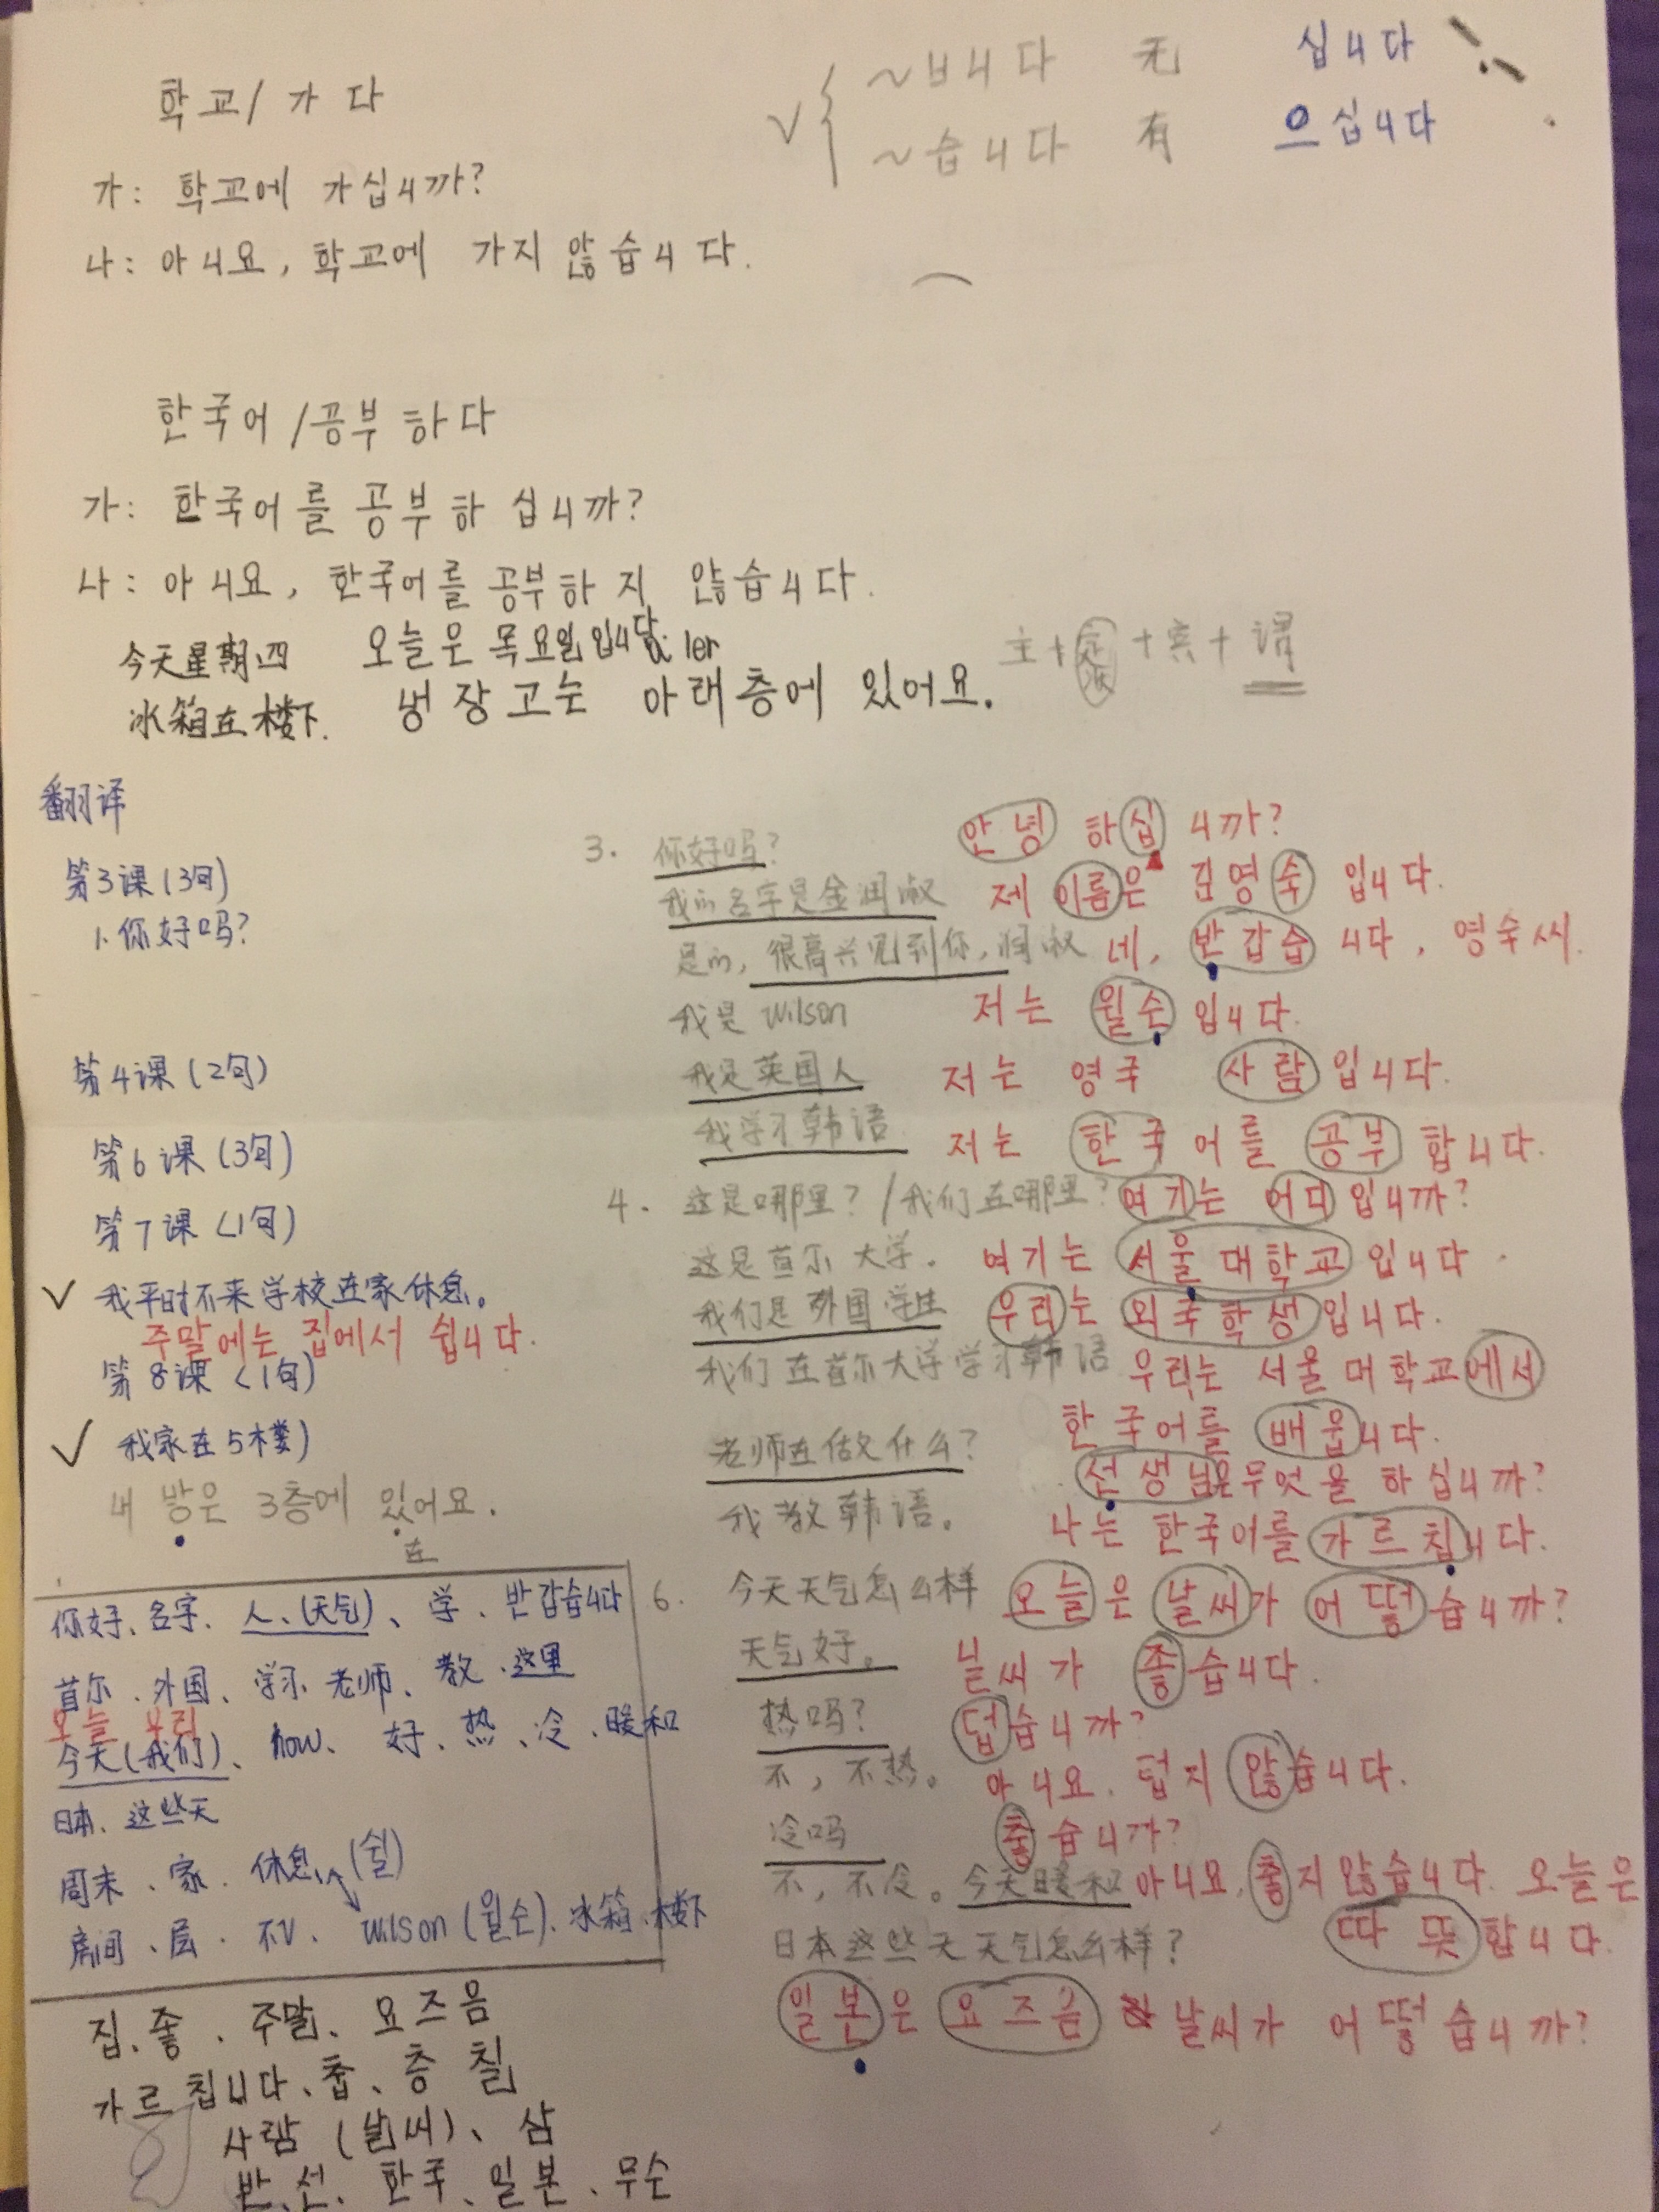 학교/가다
~ㅂ니다 无 십니다
~습니다 有 으십니다
가: 학교에 가십니까?
나: 아니요, 학교에 가지 않습니다.
한국어/공부하다
가: 한국어를 공부하십니까?
나: 아니요, 한국어를 공부하지 않습니다.
今天星期四 오늘은 목요일입니다
冰箱在楼下. 냉장고는 아래층에 있어요.
主+定状+宾+谓
翻译
第3课(3句)
1.你好吗?
第4课(2句)
第6课(3句)
第7课(1句)
✓ 我平时不来学校在家休息。
주말에는 집에서 쉽니다.
第8课(1句)
✓ 我家在5楼)
내 방은 3층에 있어요.
在
3. 你好吗? 안녕하십니까?
我的名字是金润淑 제 이름은 김영숙입니다.
是的,很高兴见到你,润淑 네, 반갑습니다, 영숙씨.
我是Wilson 저는 윌슨입니다.
我是英国人 저는 영국 사람입니다.
我学习韩语 저는 한국어를 공부합니다.
4. 这是哪里?/我们在哪里? 여기는 어디입니까?
这是首尔大学. 여기는 서울대학교입니다.
我们是外国学生 우리는 외국학생입니다.
我们在首尔大学学习韩语 우리는 서울대학교에서
한국어를 배웁니다.
老师在做什么? 선생님은 무엇을 하십니까?
我教韩语。 나는 한국어를 가르칩니다.
6. 今天天气怎么样 오늘은 날씨가 어떻습니까?
天气好。 날씨가 좋습니다.
热吗? 덥습니까?
不,不热。 아니요. 덥지 않습니다.
冷吗 춥습니까?
不,不冷。今天暖和 아니요, 춥지 않습니다. 오늘은
따뜻합니다.
日本这些天天气怎么样?
일본은 요즈음 날씨가 어떻습니까?
你好、名字、人、(天气)、学、반갑습니다
首尔、外国、学习、老师、教、这里
오늘 우리
今天(我们)、how、好、热、冷、暖和
日本、这些天
周末、家、休息、(쉴)
房间、层、不V、Wilson(윌슨)、冰箱、楼下
집、좋、주말、요즈음
가르칩니다、춥、층 칠
사람 (날씨)、삼
반、선、한국、일본、무슨